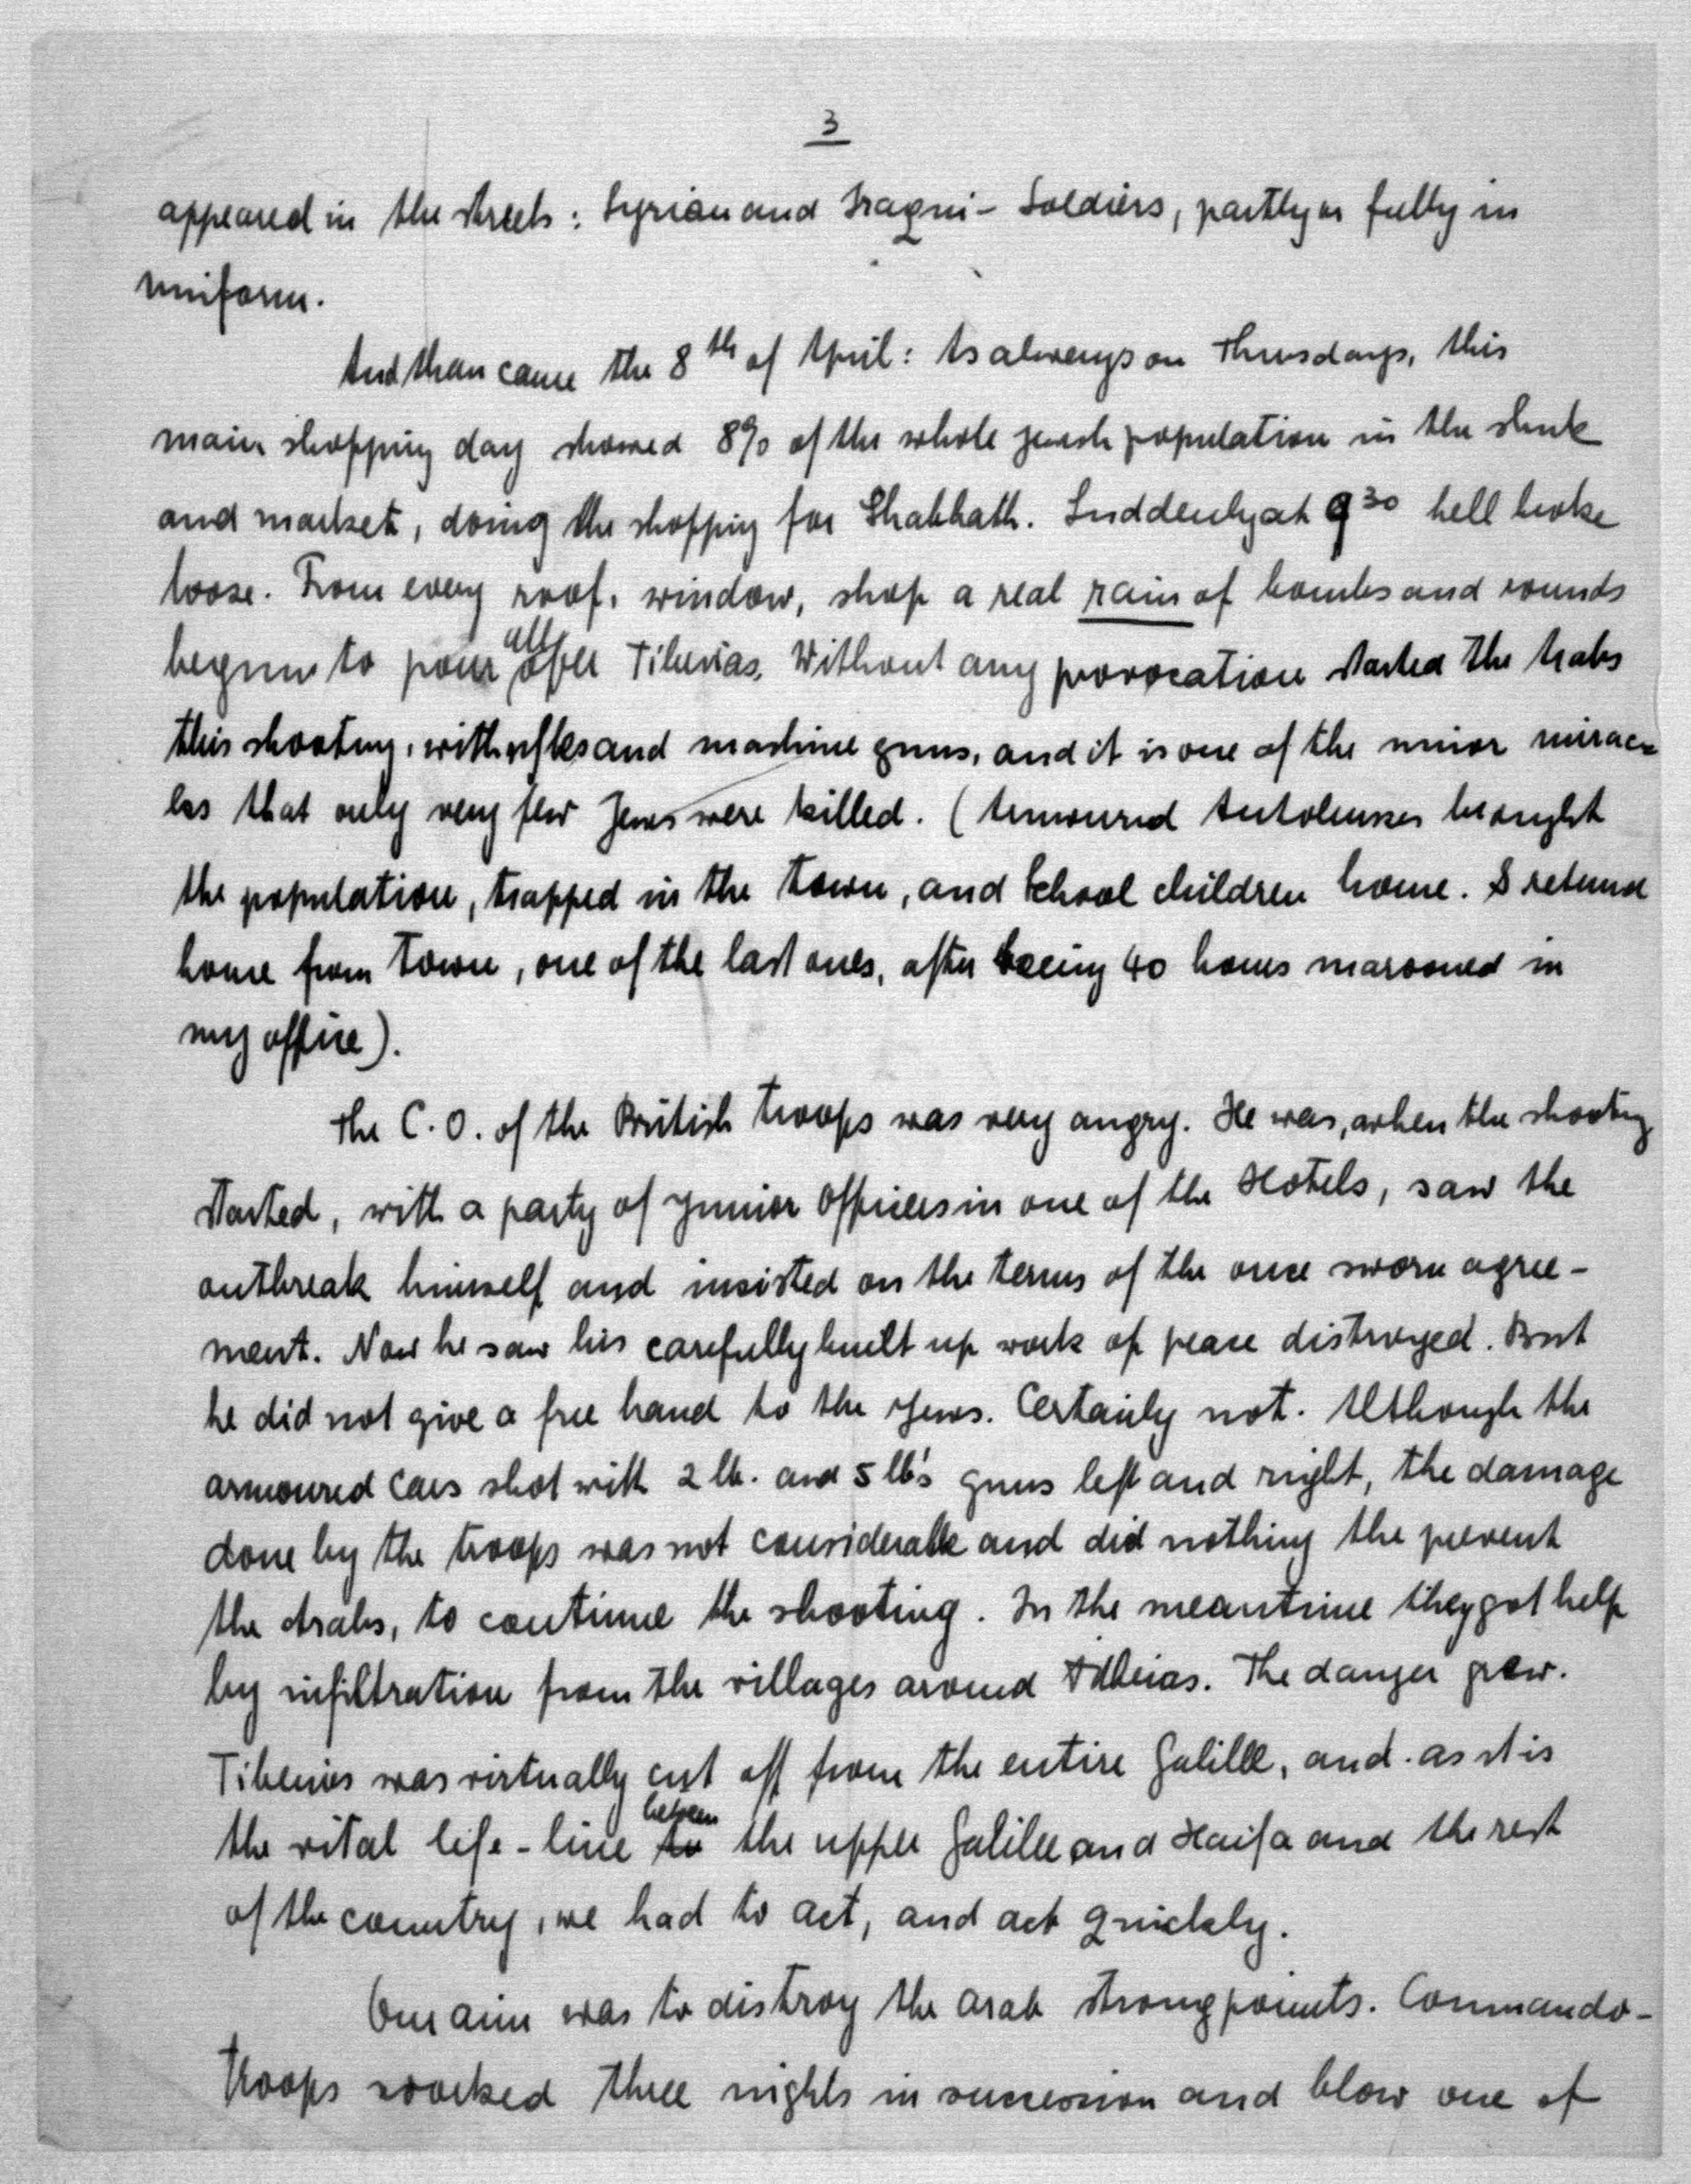 3
appeared in the streets : Syrian and Iraqui - Soldiers, partly or fully in
uniform.
And than came the 8th of April : As always on Thursdays, this
main shopping day showed 8% of the whole jewish population in the shuk
and market, doing the shopping for Shabbath. Suddenly at 9 30 hell broke
loose. From every roof, window, shop a real rain of bombs and rounds
begun to pour all over Tiberias. Without any provocation started the Arabs
this shooting, with rifles and mashine guns, and it is one of the minor mirac-
les that only very few Jews were killed. ( Armoured Autobusses brought
the population, trapped in the town, and School children home. I returned
home from town, one of the last ones, after beeing 40 hours marooned in
my office ).
The C.O. of the British troops was very angry. He was, when the shooting
started, with a party of junior Officers in one of the Hotels, saw the
outbreak himself and insisted on the terms of the once sworn agree-
ment. Now he saw his carefully built up work of peace distroyed. But
he did not give a free hand to the Jews. Certainly not. Although the
armoured cars shot with 2 lb. and 5 lb's guns left and right, the damage
done by the troops was not considerable and did nothing the prevent
the Arabs, to continue the shooting. In the meantime they got help
by infiltration from the villages around Tiberias. The danger grew.
Tiberias was virtually cut off from the entire Galilee, and as it is
the vital life-line between the upper Galilee and Haifa and the rest
of the country, we had to act, and act quickly.
Our aim was to distroy the arab strongpoints. Commando-
troops worked three nights in succession and blow one of